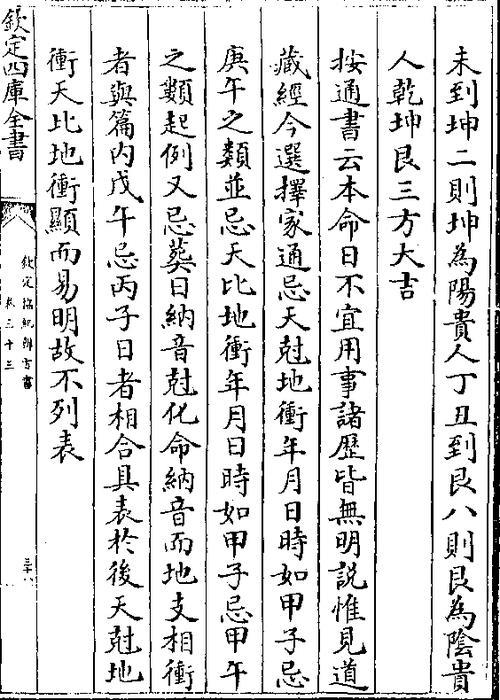 未到坤二則坤為陽貴人丁丑到艮八則艮為陰貴
人乾坤艮三方大吉
按通書云本命日不宜用事諸歷皆無明説惟見道
藏經今選擇家通忌天尅地衝年月日時如甲子忌
庚午之類並忌天比地衝年月日時如甲子忌甲午
之類起例又忌葬日納音尅化命納音而地支相衝
者與篇内戊午忌丙子日者相合具表於後天尅地
衝天比地衝顯而易明故不列表
欽定四庫全書
欽定協紀辨方書
卷三十三